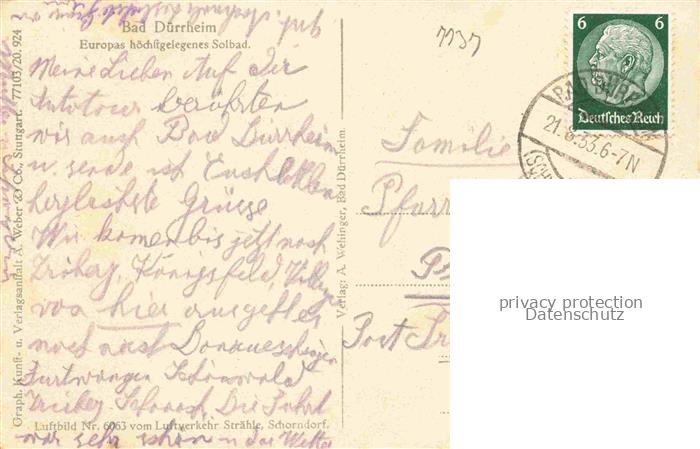 Bad Dürrheim
Europas höchstgelegenes Solbad.
Meine Lieben Auf der
Autotour berührten
wir auch Bad Dürrheim
u. sende ich Euch allen
herzlichste Grüsse
Wir komen bis jetzt nach
Triberg, Königsfeld,
von hier aus geht es
noch nach Donaueschingen
Furtwangen Schönwald
Triberg Schonach, Die Fahrt
war sehr schön u das Wetter
Graph. Kunst- u. Verlagsanstalt A. Weber & Co., Stuttgart. 77103/20, 924
Luftbild Nr. 6063 vom Luftverkehr Strähle, Schorndorf.
Verlag: A. Wehinger, Bad Dürrheim.
7737
6 6
Deutsches Reich
BAD DÜRRHEIM
21.8.33.6-7N
Familie
Pfarr
Post
privacy protection
Datenschutz